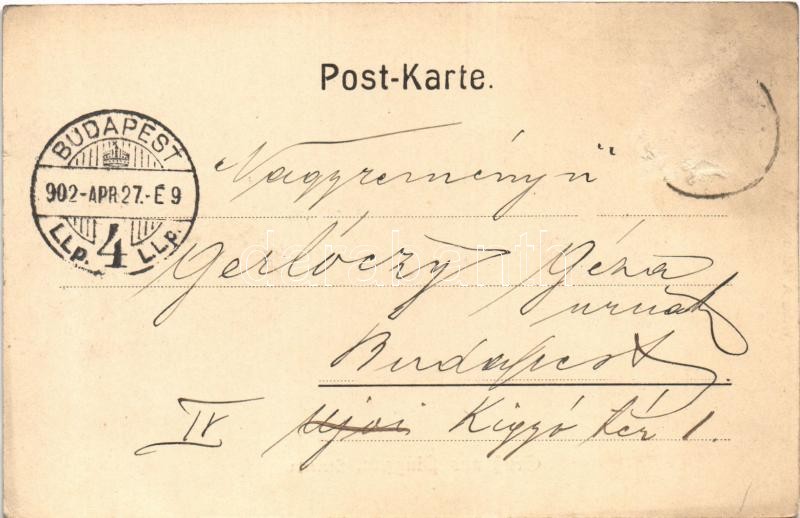 Post-Karte.
BUDAPEST
902-APR.27.-É9
LLp. 4 LLp.
"Nagyreményű"
Gerlóczy Géza
urnak
Budapest.
IV Kigyó tér 1.